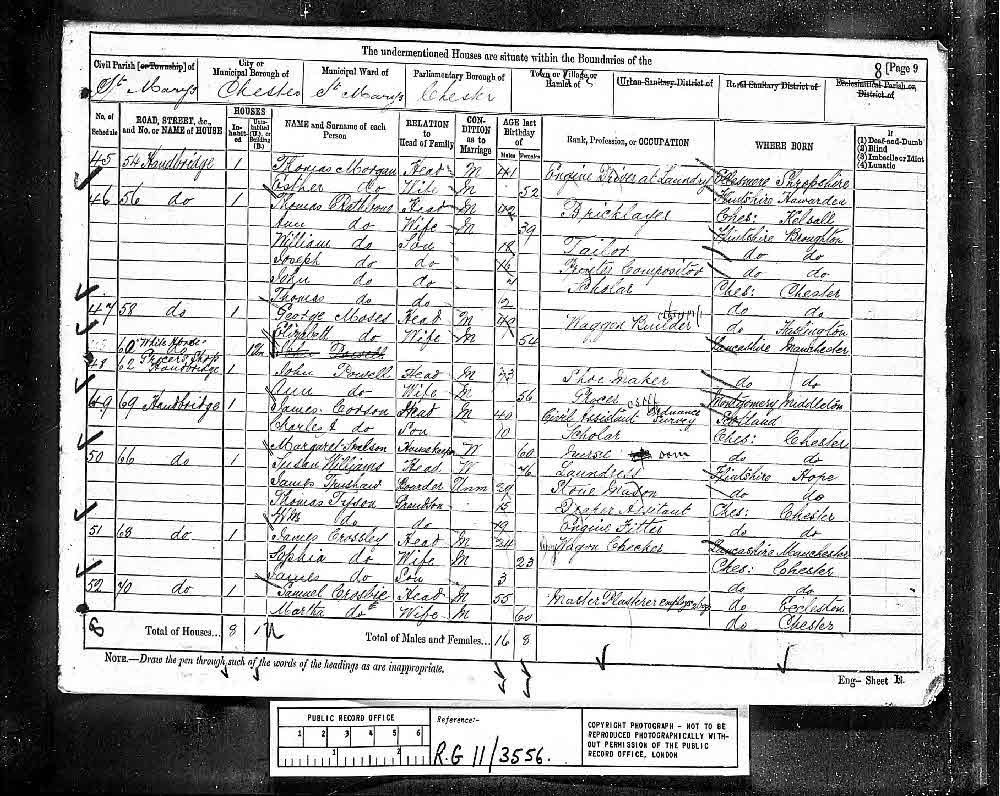 The undermentioned Houses are situate within the Boundaries of the
8 [Page 9
Civil Parish [or Township] of
St Marys
City or Municipal Borough of
Chester
Municipal Ward of
St Marys
Parliamentary Borough of
Chester
Town or Village or Hamlet of
Urban Sanitary District of
Rural Sanitary District of
Ecclesiastical Parish or District of
No. of Schedule
ROAD, STREET, &c., and No. or NAME of HOUSE
HOUSES
Inhabited
Uninhabited (U.), or Building (B.)
NAME and Surname of each Person
RELATION to Head of Family
CONDITION as to Marriage
AGE last Birthday of
Males
Females
Rank, Profession, or OCCUPATION
WHERE BORN
If
(1) Deaf-and-Dumb
(2) Blind
(3) Imbecile or Idiot
(4) Lunatic
45 54 Handbridge 1 Thomas Morgan Head M 41 Engine Driver at Laundry Ellesmere Shropshire
Esther do Wife M 52 Flintshire Hawarden
46 56 do 1 Thomas Rathbone Head M 42 Bricklayer Ches: Kelsall
Ann do Wife M 39 Flintshire Broughton
William do Son 18 Tailor do do
Joseph do do 16 Compositor do do
John do do Scholar Ches: Chester
Thomas do do 2 do do
47 58 do 1 George Moses Head M 40 Waggon Builder do
Elizabeth do Wife M 54 Lancashire Manchester
60 White Horse
48 62 Grocers Shop Handbridge 1 John Powell Head M 43 Shoe Maker do do
Ann do Wife M 56 Grocer Montgomery Middleton
49 69 Handbridge 1 James Corson Head M 40 Civil Assistant Ordnance Survey Scotland
Charles do Son 10 Scholar Ches: Chester
Margaret Housekeeper W 60 Nurse do do
50 66 do 1 Susan Williams Head W 76 Laundress Flintshire Hope
James Boarder Unm 29 Stone Mason do do
Thomas Tyson Grandson 15 Draper Assistant Ches: Chester
Wm do do 19 Engine Fitter do do
51 68 do 1 James Crossley Head M 34 Wagon Checker Lancashire Manchester
Sophia do Wife M 23 Ches: Chester
James do Son 3 do do
52 70 do 1 Samuel Crosbie Head M 55 Master Plasterer do Eccleston
Martha do Wife M 60 do Chester
8 Total of Houses... 8 1 U Total of Males and Females... 16 8
NOTE.—Draw the pen through such of the words of the headings as are inappropriate.
Eng— Sheet
PUBLIC RECORD OFFICE
1 2 3 4 5 6
1 2
Reference:-
R.G 11/3556.
COPYRIGHT PHOTOGRAPH - NOT TO BE
REPRODUCED PHOTOGRAPHICALLY WITH-
OUT PERMISSION OF THE PUBLIC
RECORD OFFICE, LONDON